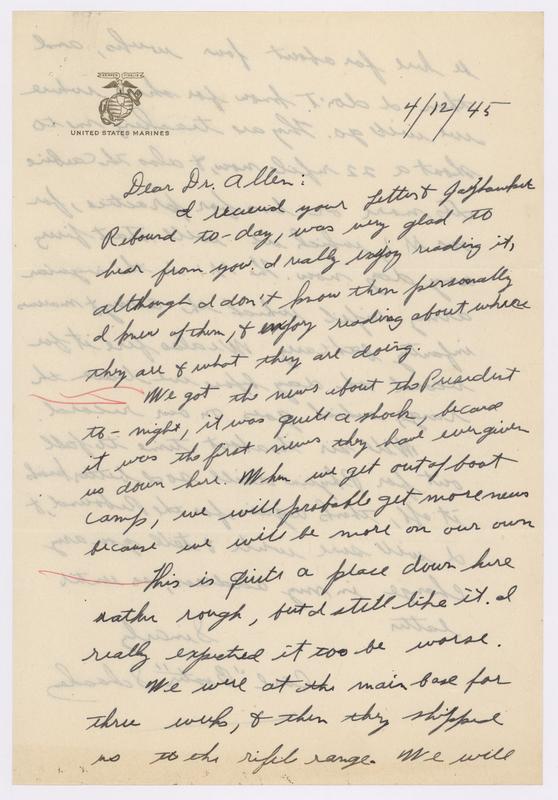 UNITED STATES MARINES
4/12/45
Dear Dr. Allen:
I received your Letter & Jayhawk
Rebound to-day, was very glad to
hear from you. I really enjoy reading it,
although I don't know them personally
I knew of them, & enjoy reading about where
they are & what they are doing.
We got the news about the President
to-night, it was quite a shock, because
it was the first news they have ever given
us down here. When we get out of boot
camp, we will probably get more news
because we will be more on our own
This is quite a place down here
rather rough, but I still like it. I
really expected it too be worse.
We were at the main base for
three weeks, & then they shipped
us to the rifel range. We will